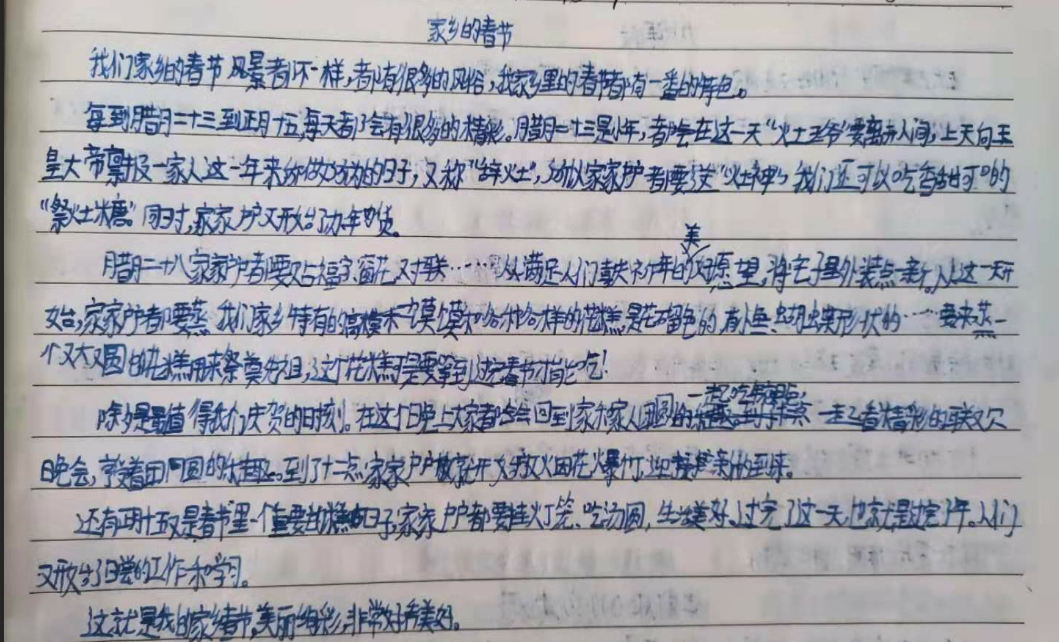 家乡的春节
我们家乡的春节风景都不一样,都有很多的风俗,我家里的春节都有一番的特色。
每到腊月二十三到正月十五每天都会有很多的精彩。腊月二十三是小年,都会在这一天“火土爷”要离开人间,上天向玉
皇大帝禀报一家人这一年来的日子,又称“辞火土”,所以家家户都要“火土神”我们还可以吃香甜可口的
“祭火土糖”同时,家家户又开始了办年货。
腊月二十八家家户都要贴福字窗花对联……以满足人们喜庆的美愿望,将屋子里外装点一新,从这一天开
始,家家户都要蒸我们家乡特有的馍馍各种各样的花糕是花色的有小鱼蝴蝶形状的……要来蒸一
个又大又圆的花糕用来祭奠先祖,这个花糕可是要等到过完春节才能吃!
除夕是最值得我们庆贺的时刻。在这个晚上大家都会回到家和家人团圆的一起吃一起看精彩的联欢
晚会,享受着团圆的,到了十二点,家家户户就开始放火因花爆竹,迎接新的到来。
还有正月十五又是春节里一个重要的日子,家家户户都要挂灯笼、吃汤圆,生活美好,过完了这一天,也就是过完了年。人们
又开始了日常的工作和学习。
这就是我的家乡春节,美丽绚彩,非常好美好。